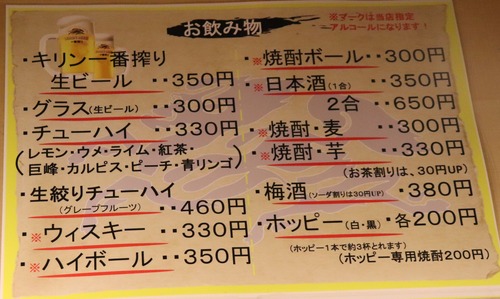 お飲み物
※マークは当店指定
アルコールになります!
・キリン一番搾り
生ビール ・・350円
・グラス(生ビール) ・・300円
・チューハイ ・・330円
(レモン・ウメ・ライム・紅茶・
巨峰・カルピス・ピーチ・青リンゴ)
・生絞りチューハイ
(グレープフルーツ) ・・460円
・※ウィスキー ・・330円
・※ハイボール ・・350円
・※焼酎ボール ・・300円
・※日本酒(1合) ・・350円
2合 ・・650円
・※焼酎・麦 ・・300円
・※焼酎・芋 ・・330円
(お茶割りは、30円UP)
・梅酒(ソーダ割りは30円UP) ・・380円
・ホッピー(白・黒) ・各200円
(ホッピー1本で約3杯とれます)
(ホッピー専用焼酎200円)